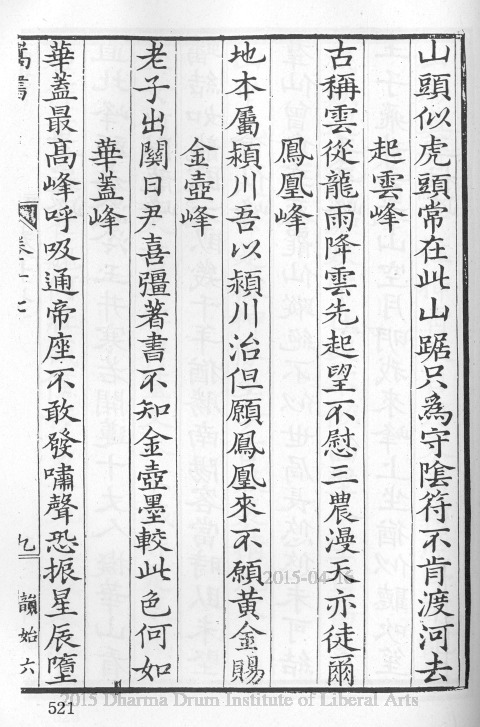 山頭似虎頭常在此山踞只爲守陰符不肯渡河去
起雲峰
古稱雲從龍雨降雲先起望不慰三農漫天亦徒爾
鳳凰峰
地本屬潁川吾以潁川治但願鳳凰來不願黃金賜
金壺峰
老子出關日尹喜彊著書不知金壺墨較此色何如
華蓋峰
華蓋最高峰呼吸通帝座不敢發嘯聲恐振星辰墮
嵩書
九
韻始六
2015-04-16
2015 Dharma Drum Institute of Liberal Arts
521